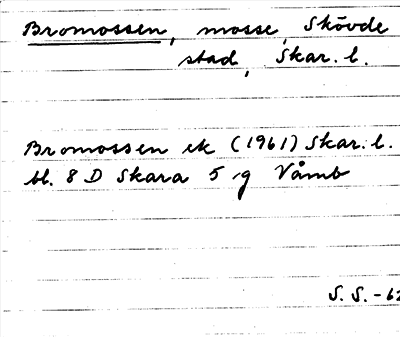 Bromossen, mosse, Skövde
stad, Skar. l.
Bromossen ek (1961) Skar. l.
bl. 8 D Skara 5 g Våmb
S. S. - 62